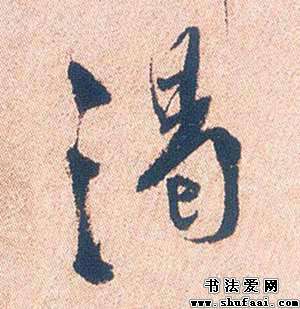 渴
书法爱网
www.shufaai.com